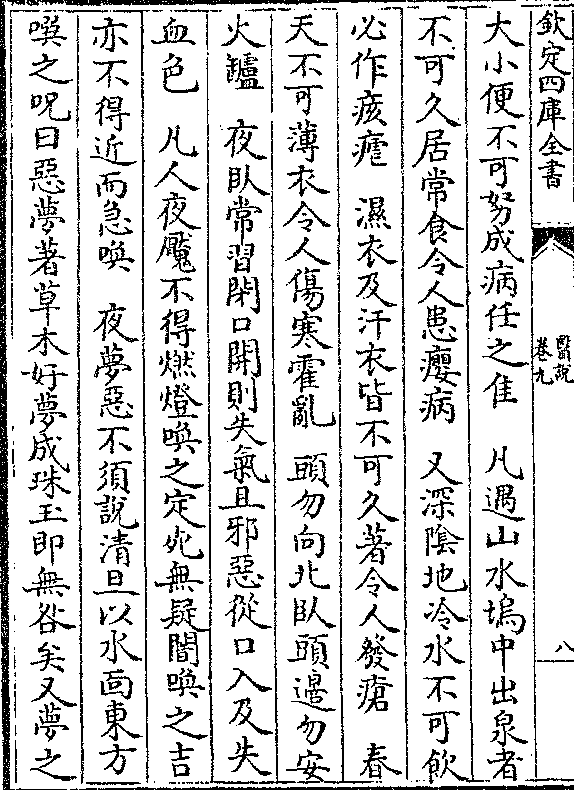 欽定四庫全書
醫說
卷九
八
大小便不可努成病任之佳　凡遇山水塢中出泉者
不可久居常食令人患癭病　又深陰地冷水不可飲
必作痎瘧　濕衣及汗衣皆不可久著令人發瘡　春
天不可薄衣令人傷寒霍亂　頭勿向北臥頭邊勿安
火罏　夜臥常習閉口開則失氣且邪惡從口入及失
血色　凡人夜魘不得燃燈喚之定死無疑闇喚之吉
亦不得近而急喚　夜夢惡不須說清旦以水面東方
噀之呪曰惡夢著草木好夢成珠玉即無咎矣又夢之